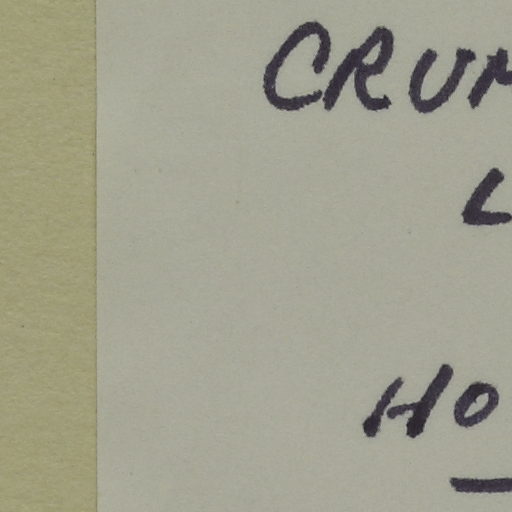 CRUM
L
HO